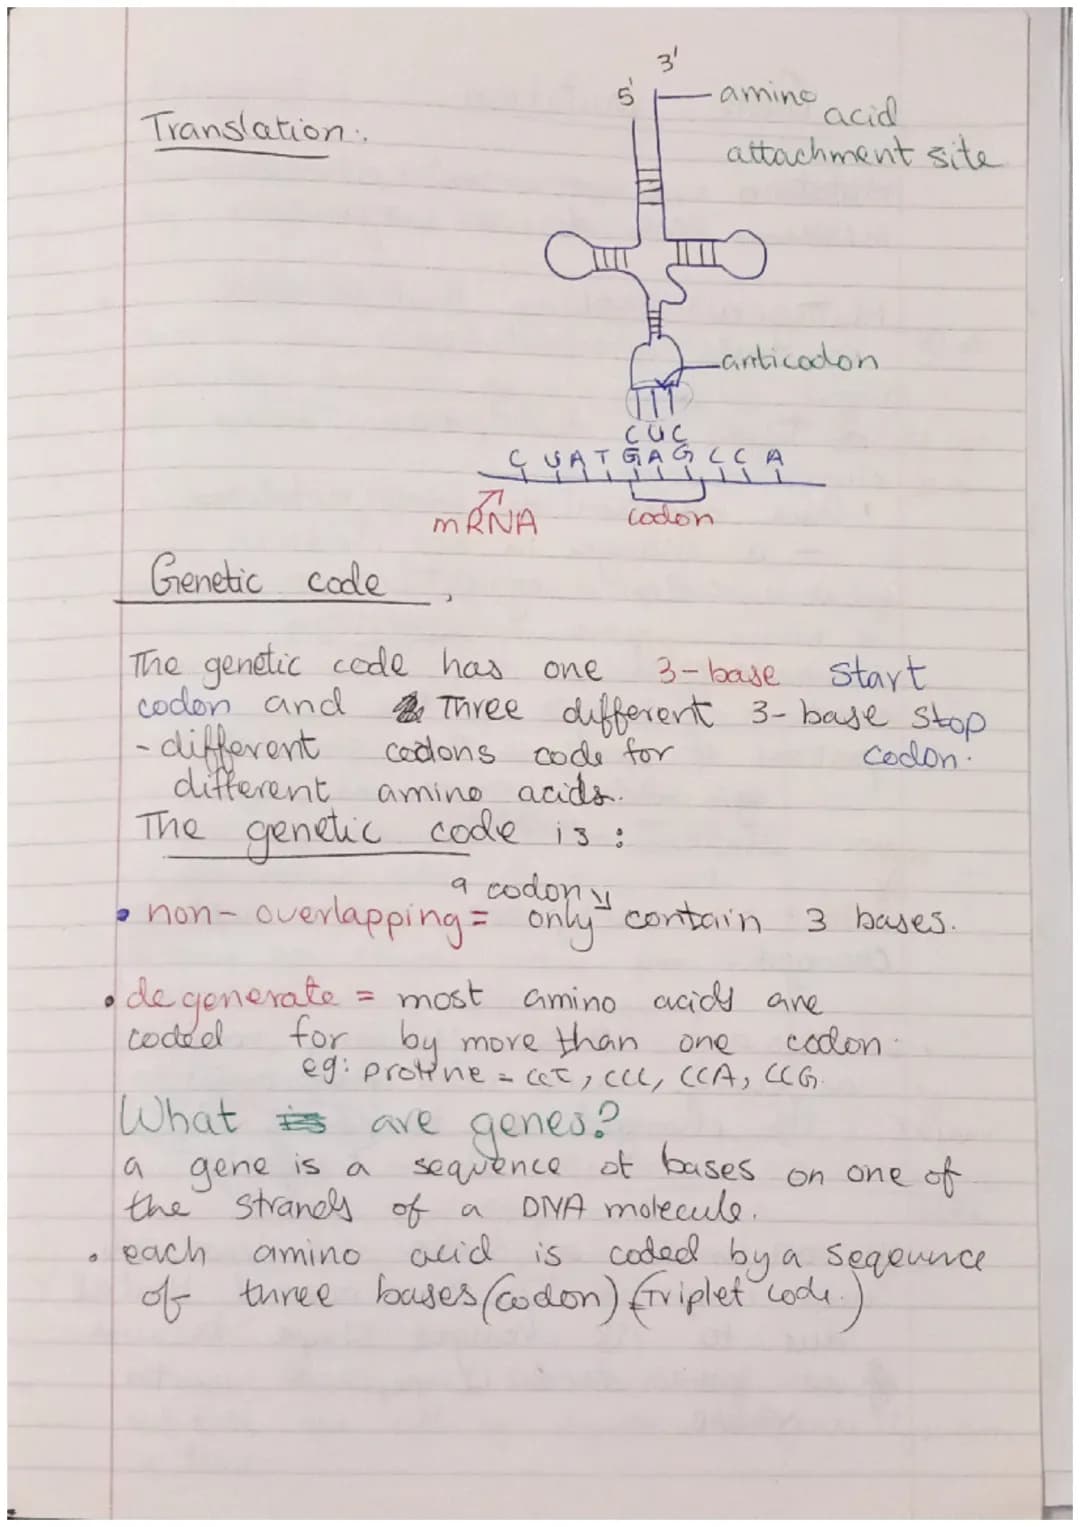 3'
5'
amino acid
attachment site
Translation:.
anticodon
CUC
CUATGAGCCA
mRNA
codon
Genetic code
The genetic code has one 3-base start
codon and Three different 3-base stop
codon.
- different codons code for
different amino acids.
The genetic code is :
a codon
• non-overlapping = only contain 3 bases.
• degenerate = most amino acids are
coded for by more than one codon.
eg: = CCT, CCC, CCA, CCG.
What are genes?
a gene is a sequence of bases on one of
the strands of a DNA molecule.
• each amino acid is coded by a seqeunce
of three bases (codon) (Triplet code.)